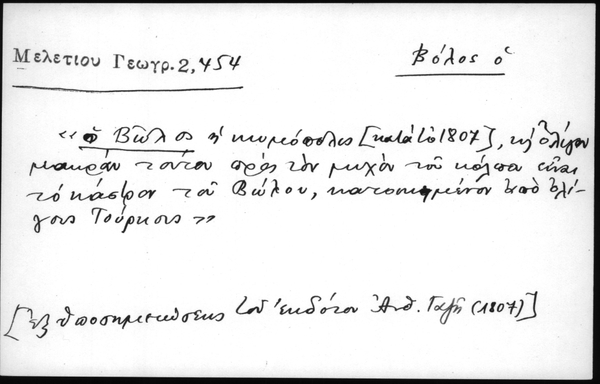 Μελετίου Γεωγρ. 2, 454
Βόλος ὁ
«ὁ Βῶλος ἡ κωμόπολις [κατὰ τὸ 1807], κὴ ὀλίγον
μακρὰν τούτου πρὸς τὸν μυχὸν τοῦ κόλπου εἶναι
τὸ κάστρον τοῦ Βώλου, κατοικημένον ὑπὸ ὀλί-
γους Τούρκους»
[ἐξ ὑποσημειώσεως τοῦ ἐκδότου Ἀνθ. Γαζῆ (1807)]